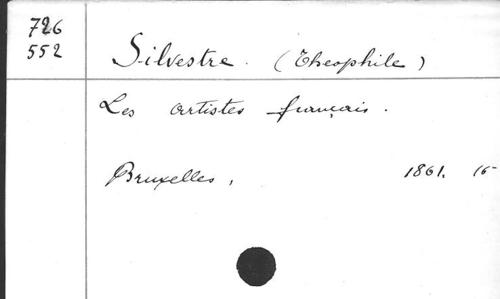 726
552
Silvestre. (Theophile)
Les artistes français.
Bruxelles, 1861. 16-